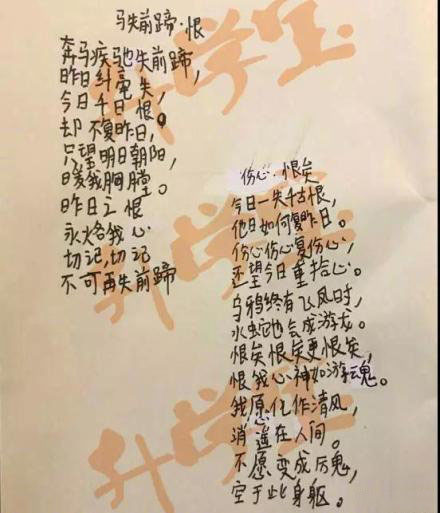 马失前蹄·恨
奔马疾驰失前蹄,
昨日纠毫失,
今日千日恨。
却不复昨日,
只望明日朝阳,
暖我胸膛。
昨日之恨
永烙我心
切记,切记
不可再失前蹄
伤心·恨矣
今日一失千古恨,
他日如何复昨日。
伤心伤心复伤心,
还望今日重拾心。
乌鸦终有飞凤时,
水蛇也会成游龙。
恨矣恨矣更恨矣,
恨我心神如游魂。
我愿化作清风,
消遥在人间。
不愿变成厉鬼,
空于此身躯。
升学宝
升学宝
升学宝